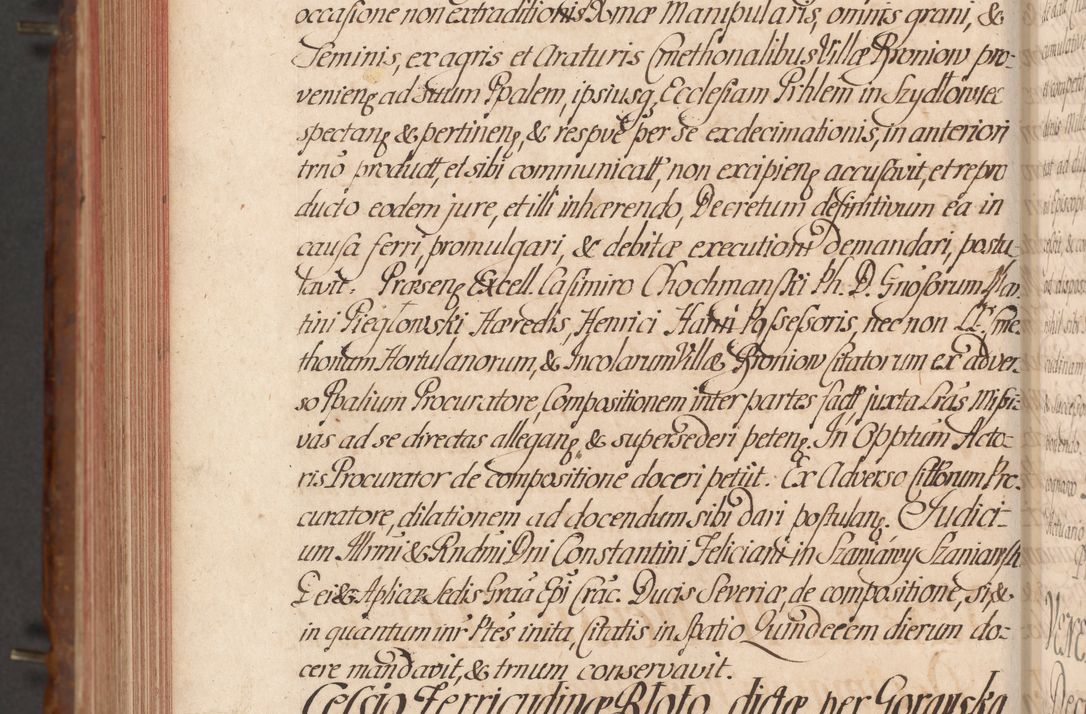 occasione non extraditionis Xmæ Manipularis, omnis grani, &
Seminis, ex agris et Araturis Cmethonalibus Villæ Broniow pro-
venieng ad suum Ppalem, ipsiusq Ecclesiam Pchlem in Szydłowiec
spectang & pertineng, & respve per se ex decimationis, in anteriori
trno product, et sibi communicatt, non excipieng accusavit, et repro
ducto eodem jure, et illi inhærendo, Decretum definitivum ea in
causa ferri, promulgari, & debitæ executioni demandari, postu-
lavit. Præseng Excell. Casimiro Chochmanski Ph. D. Gnosorum Mar-
tini Pieglowski Hæredis, Henrici Possessoris, nec non LL. Cme-
thonum Hortulanorum, & Incolarum Villæ Broniow Citatorum ex adver-
so Ppalium Procuratore, Compositionem inter partes fact, juxta Lras Missi-
vas ad se directas allegang & supersederi peteng. In Opptum Acto-
ris Procurator de compositione doceri petiit. Ex Adverso Cittorum Pro-
curatore, dilationem ad docendum sibi dari postulang. Judici-
um Illrmi & Rndmi Dni Constantini Feliciani in Szaniawy Szaniawski
Dei & Aplicæ Sedis Graa Epi Crac. Ducis Severiæ, de compositione, si, &
in quantum inr Ptes inita, Citatis in spatio Quindecem dierum do-
cere mandavit, & trnum conservavit.
Celsio Ferricudinæ Bloto dictæ per Goranska